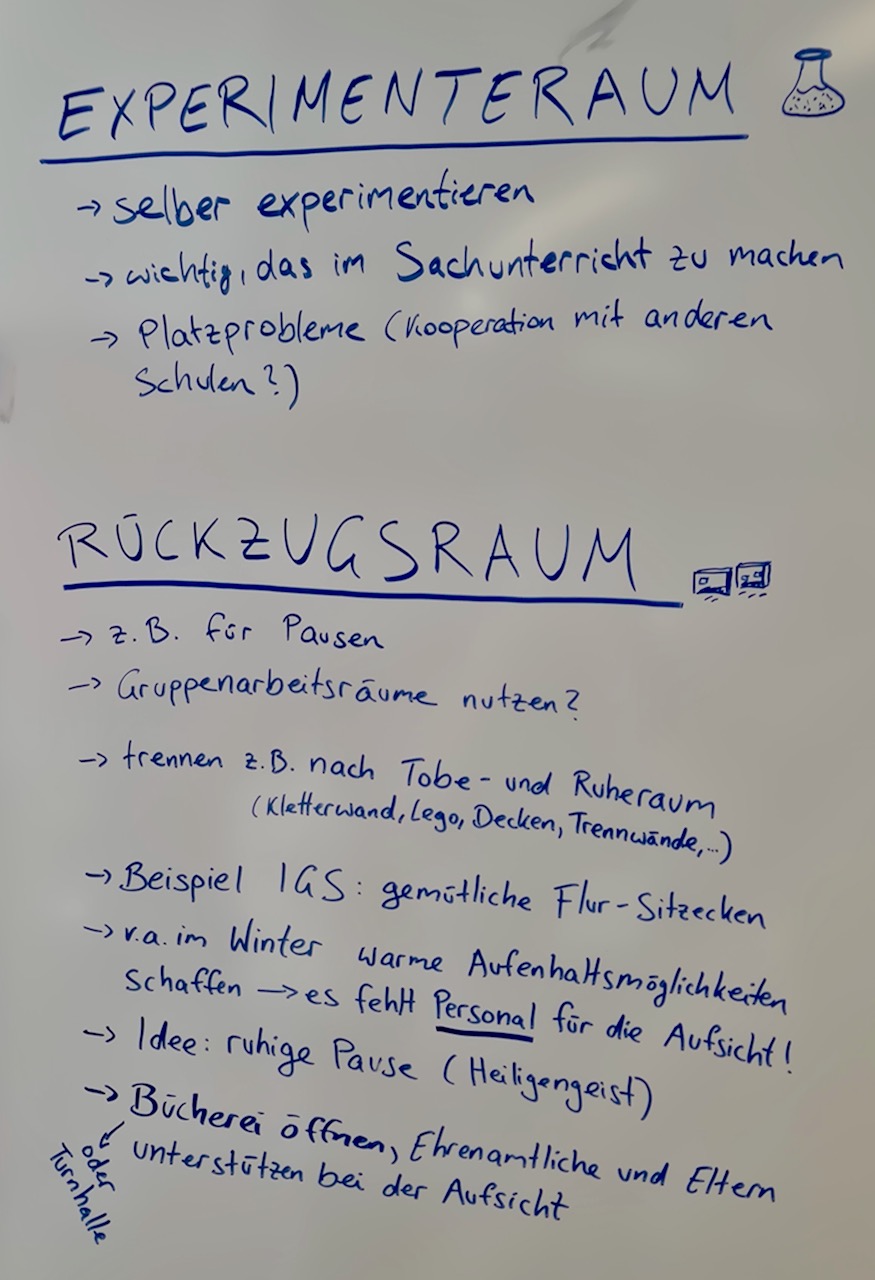 EXPERIMENTERAUM
→ selber experimentieren
→ wichtig, das im Sachunterricht zu machen
→ Platzprobleme (Kooperation mit anderen
Schulen?)
RÜCKZUGSRAUM
→ z.B. für Pausen
→ Gruppenarbeitsräume nutzen?
→ trennen z.B. nach Tobe- und Ruheraum
(Kletterwand, Lego, Decken, Trennwände,...)
→ Beispiel IGS: gemütliche Flur-Sitzecken
→ v.a. im Winter warme Aufenhaltsmöglichkeiten
schaffen → es fehlt Personal für die Aufsicht!
→ Idee: ruhige Pause (Heiligengeist)
→ Bücherei öffnen, Ehrenamtliche und Eltern
unterstützen bei der Aufsicht
oder
Turnhalle